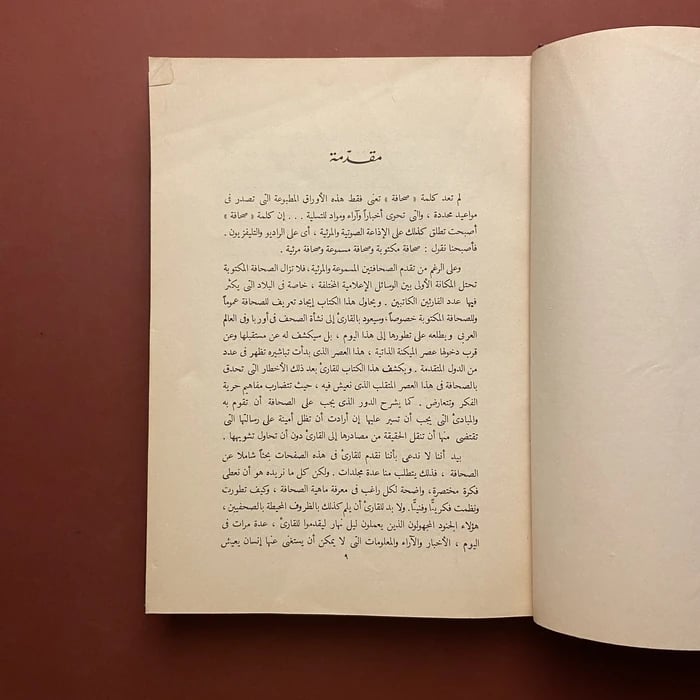 مقدّمة
لم تعد كلمة « صحافة » تعنى فقط هذه الأوراق المطبوعة التى تصدر فى
مواعيد محددة ، والتى تحوى أخباراً وآراء ومواد للتسلية . . . إن كلمة « صحافة »
أصبحت تطلق كذلك على الإذاعة الصوتية والمرئية ، أى على الراديو والتليفزيون .
فأصبحنا نقول : صحافة مكتوبة وصحافة مسموعة وصحافة مرئية .
وعلى الرغم من تقدم الصحافتين المسموعة والمرئية ، فلا تزال الصحافة المكتوبة
تحتل المكانة الأولى بين الوسائل الإعلامية المختلفة ، خاصة فى البلاد التى يكثر
فيها عدد القارئين الكاتبين . ويحاول هذا الكتاب إيجاد تعريف للصحافة عموماً
وللصحافة المكتوبة خصوصاً ، وسيعود بالقارئ إلى نشأة الصحف فى أوربا وفى العالم
العربى ويطلعه على تطورها إلى هذا اليوم ، بل سيكشف له عن مستقبلها وعن
قرب دخولها عصر الميكنة الذاتية ، هذا العصر الذى بدأت تباشيره تظهر فى عدد
من الدول المتقدمة . ويكشف هذا الكتاب للقارئ بعد ذلك الأخطار التى تحدق
بالصحافة فى هذا العصر المتقلب الذى نعيش فيه ، حيث تتضارب مفاهيم حرية
الفكر وتتعارض . كما يشرح الدور الذى يجب على الصحافة أن تقوم به
والمبادئ التى يجب أن تسير عليها إن أرادت أن تظل أمينة على رسالتها التى
تقتضى منها أن تنقل الحقيقة من مصادرها إلى القارئ دون أن تحاول تشويهها .
بيد أننا لا ندعى بأننا نقدم للقارئ فى هذه الصفحات بحثاً شاملا عن
الصحافة ، فذلك يتطلب منا عدة مجلدات . ولكن كل ما نريده هو أن نعطى
فكرة مختصرة ، واضحة لكل راغب فى معرفة ماهية الصحافة ، وكيف تطورت
ونظمت فكريًّا وفنيًّا . ولا بد للقارئ أن يلم كذلك بالظروف المحيطة بالصحفيين ،
هؤلاء الجنود المجهولون الذين يعملون ليل نهار ليقدموا للقارئ ، عدة مرات فى
اليوم ، الأخبار والآراء والمعلومات التى لا يمكن أن يستغنى عنها إنسان يعيش
٩